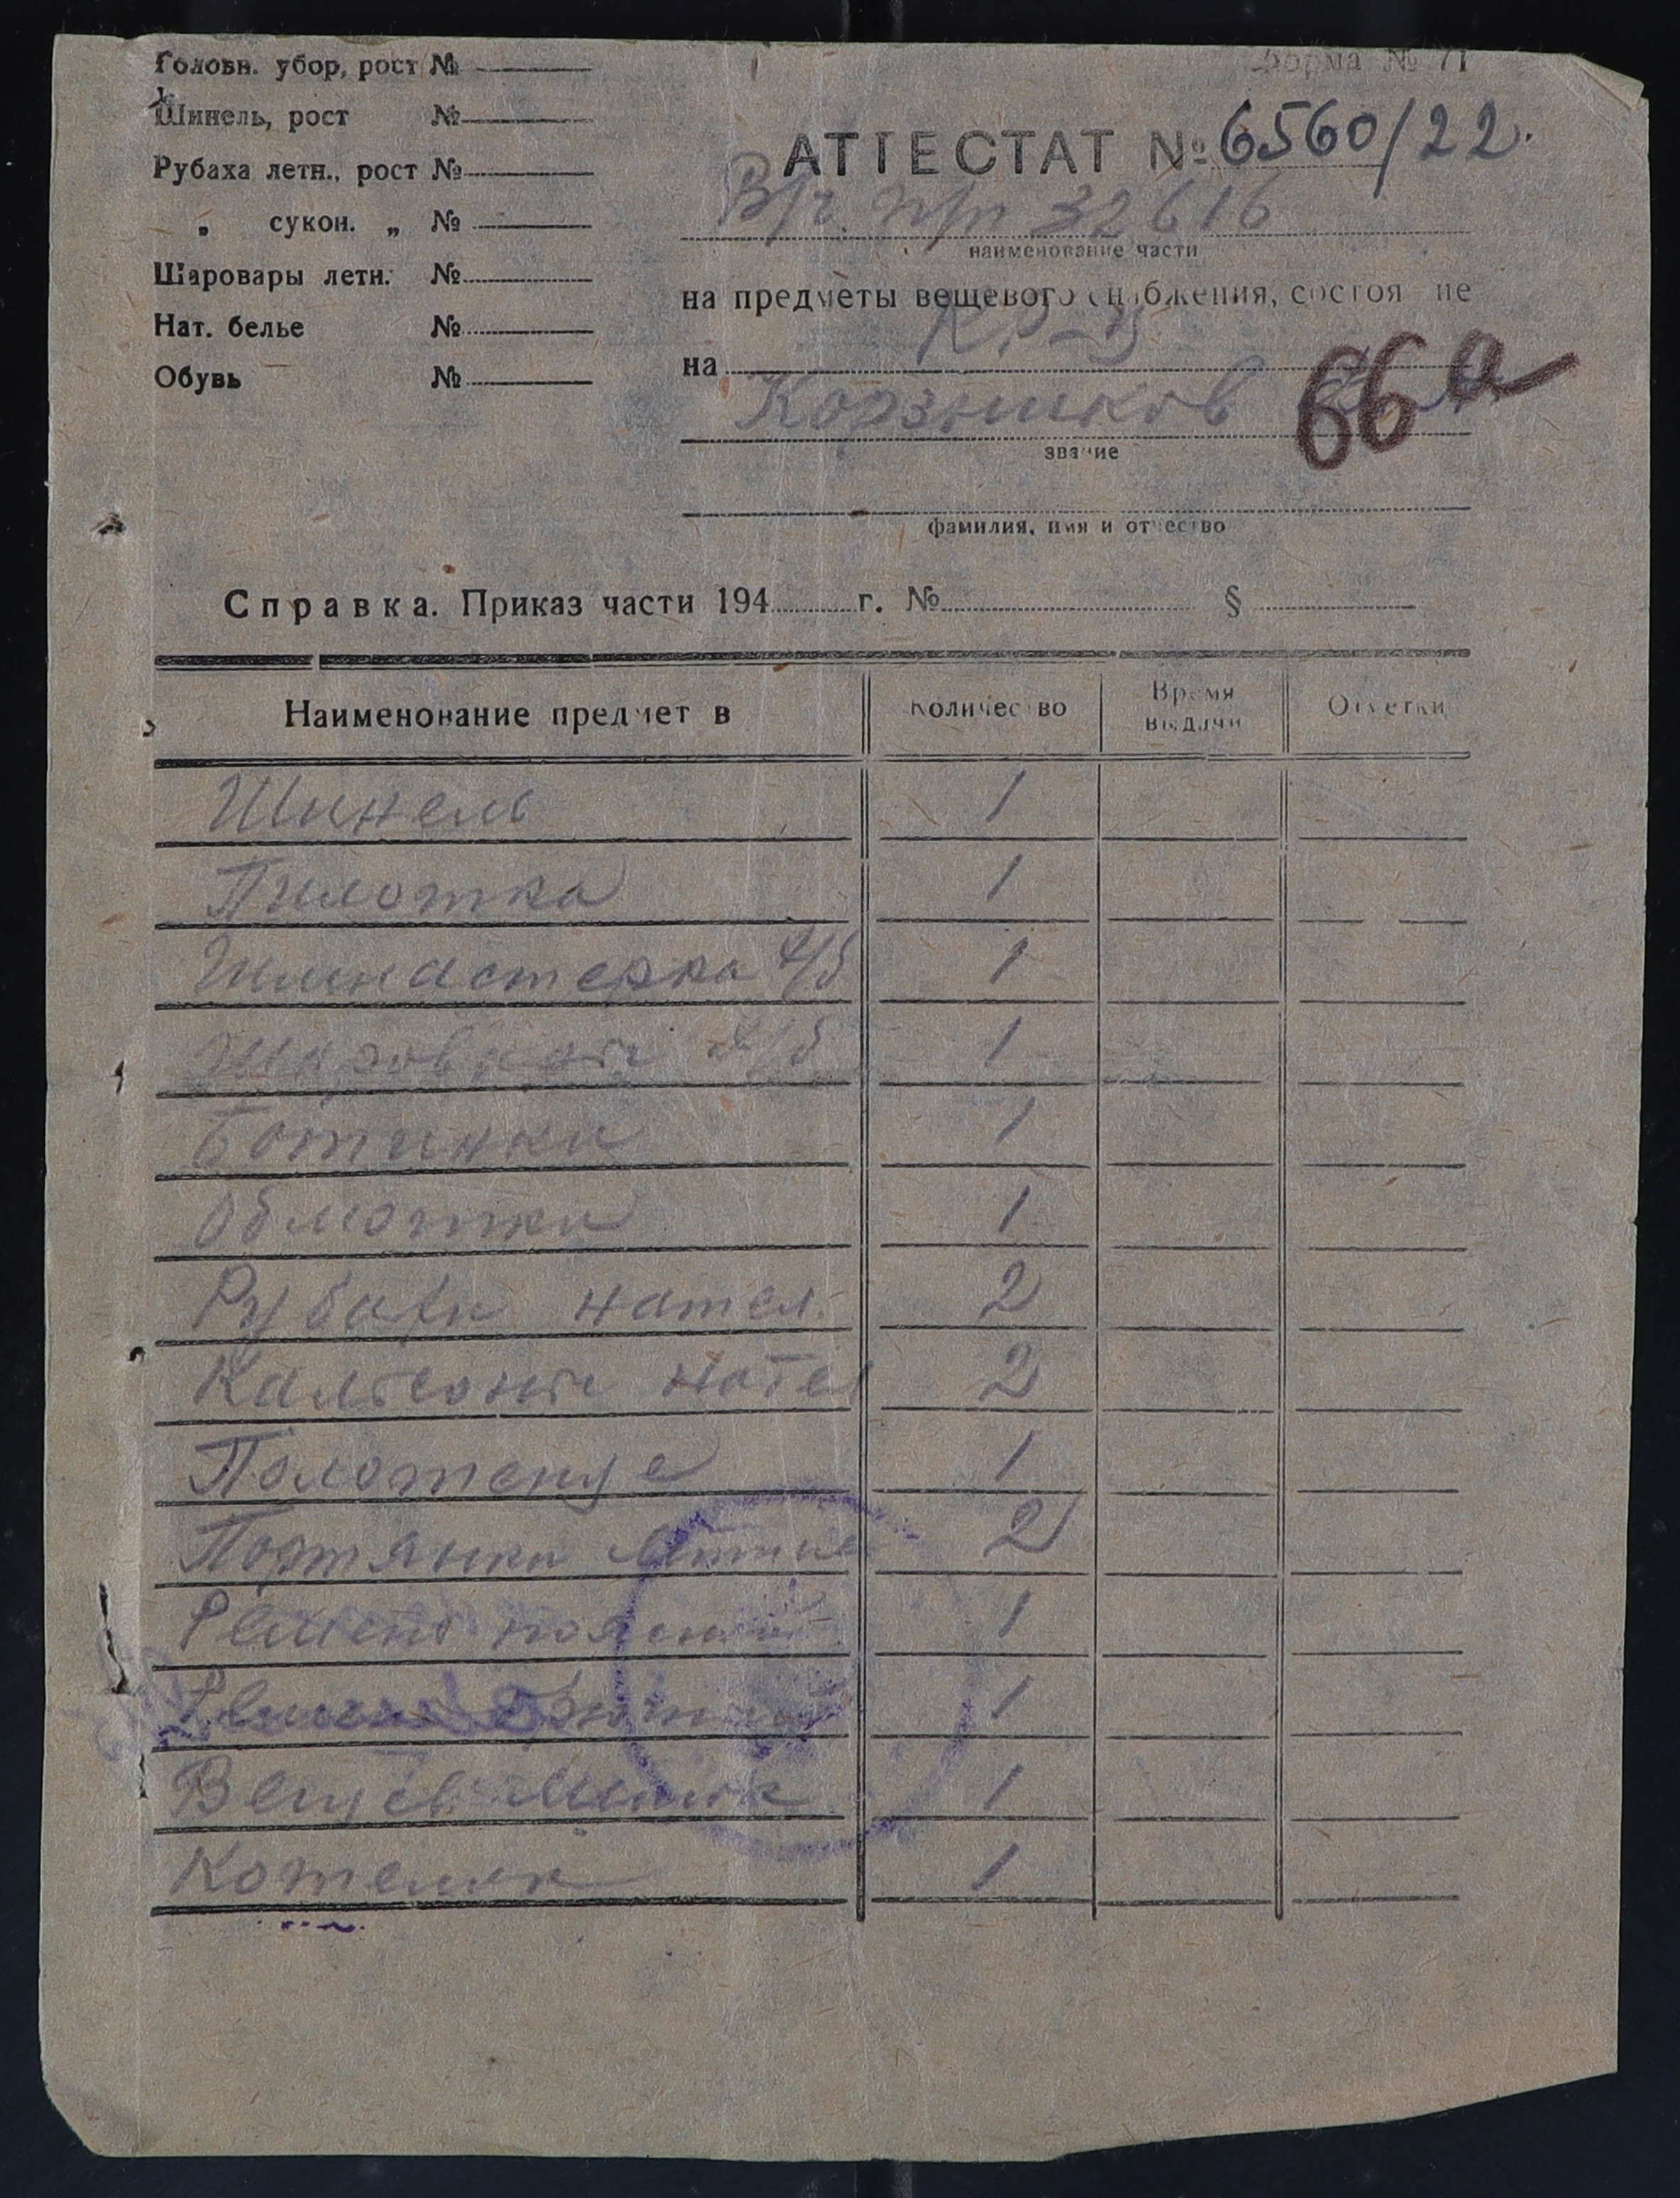 Головн. убор, рост №
Шинель, рост №
Рубаха летн., рост №
„ сукон. „ №
Шаровары летн. №
Нат. белье №
Обувь №
Форма № 71
АТТЕСТАТ № 6560/22.
В/ч п/п 32616
наименование части
на предметы вещевого снабжения, состоя не
на Кр-ц
66а
звание
фамилия, имя и отчество
Справка. Приказ части 194 г. № §
Наименование предметов Количество Время выдачи Отметки
Шинель 1
Пилотка 1
Гимнастерка х/б 1
Шаровары х/б 1
Ботинки 1
Обмотки 1
Рубахи нател. 2
Кальсоны нател 2
Полотенце 1
Портянки летние 2
Ремень поясной 1
Ремень брючн 1
Вещев. мешок 1
Котелок 1